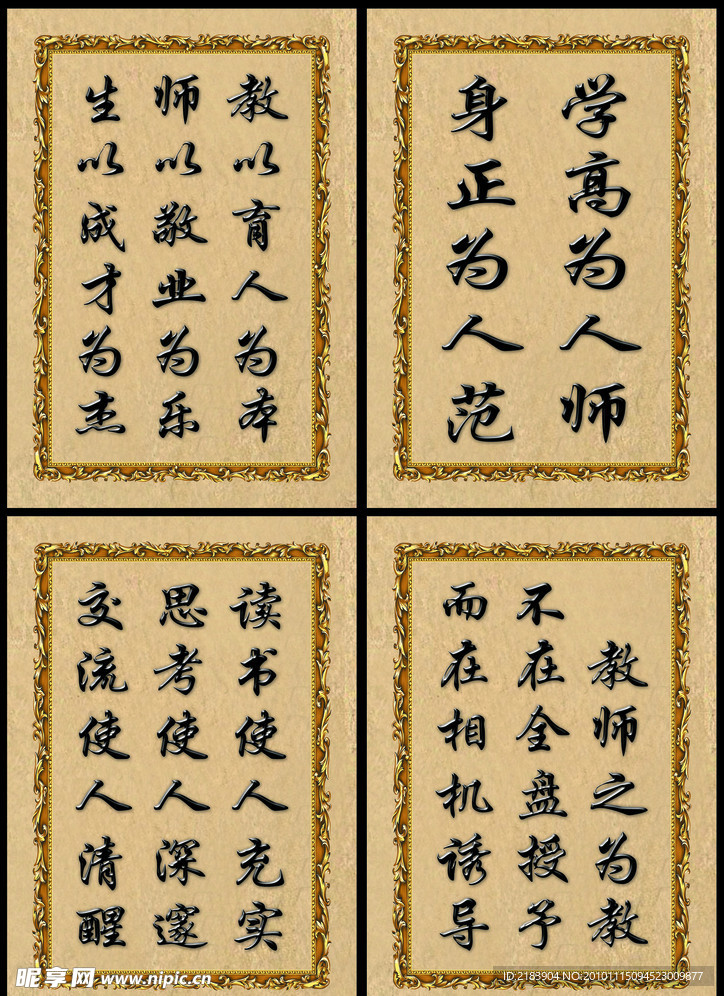 教以育人为本
师以敬业为乐
生以成才为杰
学高为人师
身正为人范
读书使人充实
思考使人深邃
交流使人清醒
教师之为教
不在全盘授予
而在相机诱导
昵享网 www.nipic.cn
ID:2183904 NO:20101115094523009677